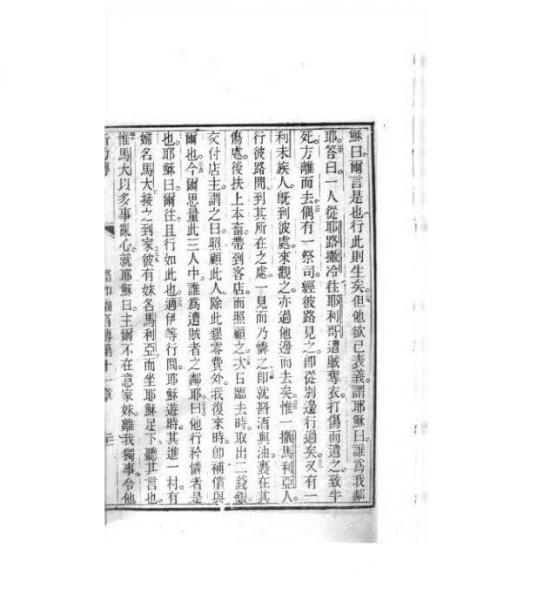 穌曰爾言是也。行此則生矣。但他欲已表義謂耶穌曰。誰為我鄰
耶。答曰一人從耶路撒冷往耶利哥。遭賊奪衣。打傷而遺之。致半
死。方離而去。偶有一祭司經彼路見之。即從別邊行過矣。又有一
利未族人。旣到彼處來觀之。亦過他邊而去矣。惟一撒馬利亞人。
行彼路間。到其所在之處。一見而乃憐之。即就斟酒與油裹在其
傷處。後扶上本畜帶到客店。而照顧之。次日臨去時。取出二錢銀
交付店主。謂之曰。照顧此人。除此銀零費外。我復來時。即補償與
爾也。今爾思量此三人中。誰為遭賊者之鄰耶。曰他行矜憐者是
也。耶穌曰。爾往且行如此也。適伊等行間。耶穌遊時。其進一村。有
婦名馬大接之到家。彼有妹名馬利亞。而坐耶穌足下。聽其言也。
惟馬大以多事亂心。就耶穌曰。主爾不在意家妹離我獨事。令他